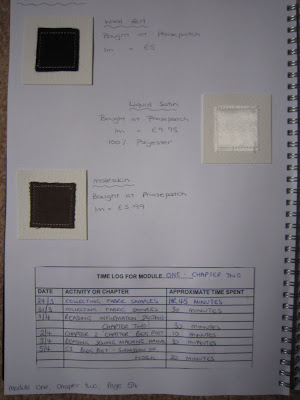 Wool felt
Bought at Phasepatch
1m = £5
Liquid Satin
Bought at Phasepatch
1m = £9.95
100% Polyester
moleskin
Bought at Phasepatch
1m = £5.99
TIME LOG FOR MODULE ONE - CHAPTER TWO
DATE ACTIVITY OR CHAPTER APPROXIMATE TIME SPENT
COLLECTING FABRIC SAMPLES 45 MINUTES
COLLECTING FABRIC SAMPLES 30 MINUTES
READING INFORMATION
CHAPTER TWO 30 MINUTES
2/4 CHAPTER 2 BLOG POST 10 MINUTES
3/4 READING SEWING MACHINE MANUAL 30 MINUTES
5/4 C2 BLOG POST - SUBMISSION OF
WORK 20 MINUTES
Module One, Chapter two, Page 5/6